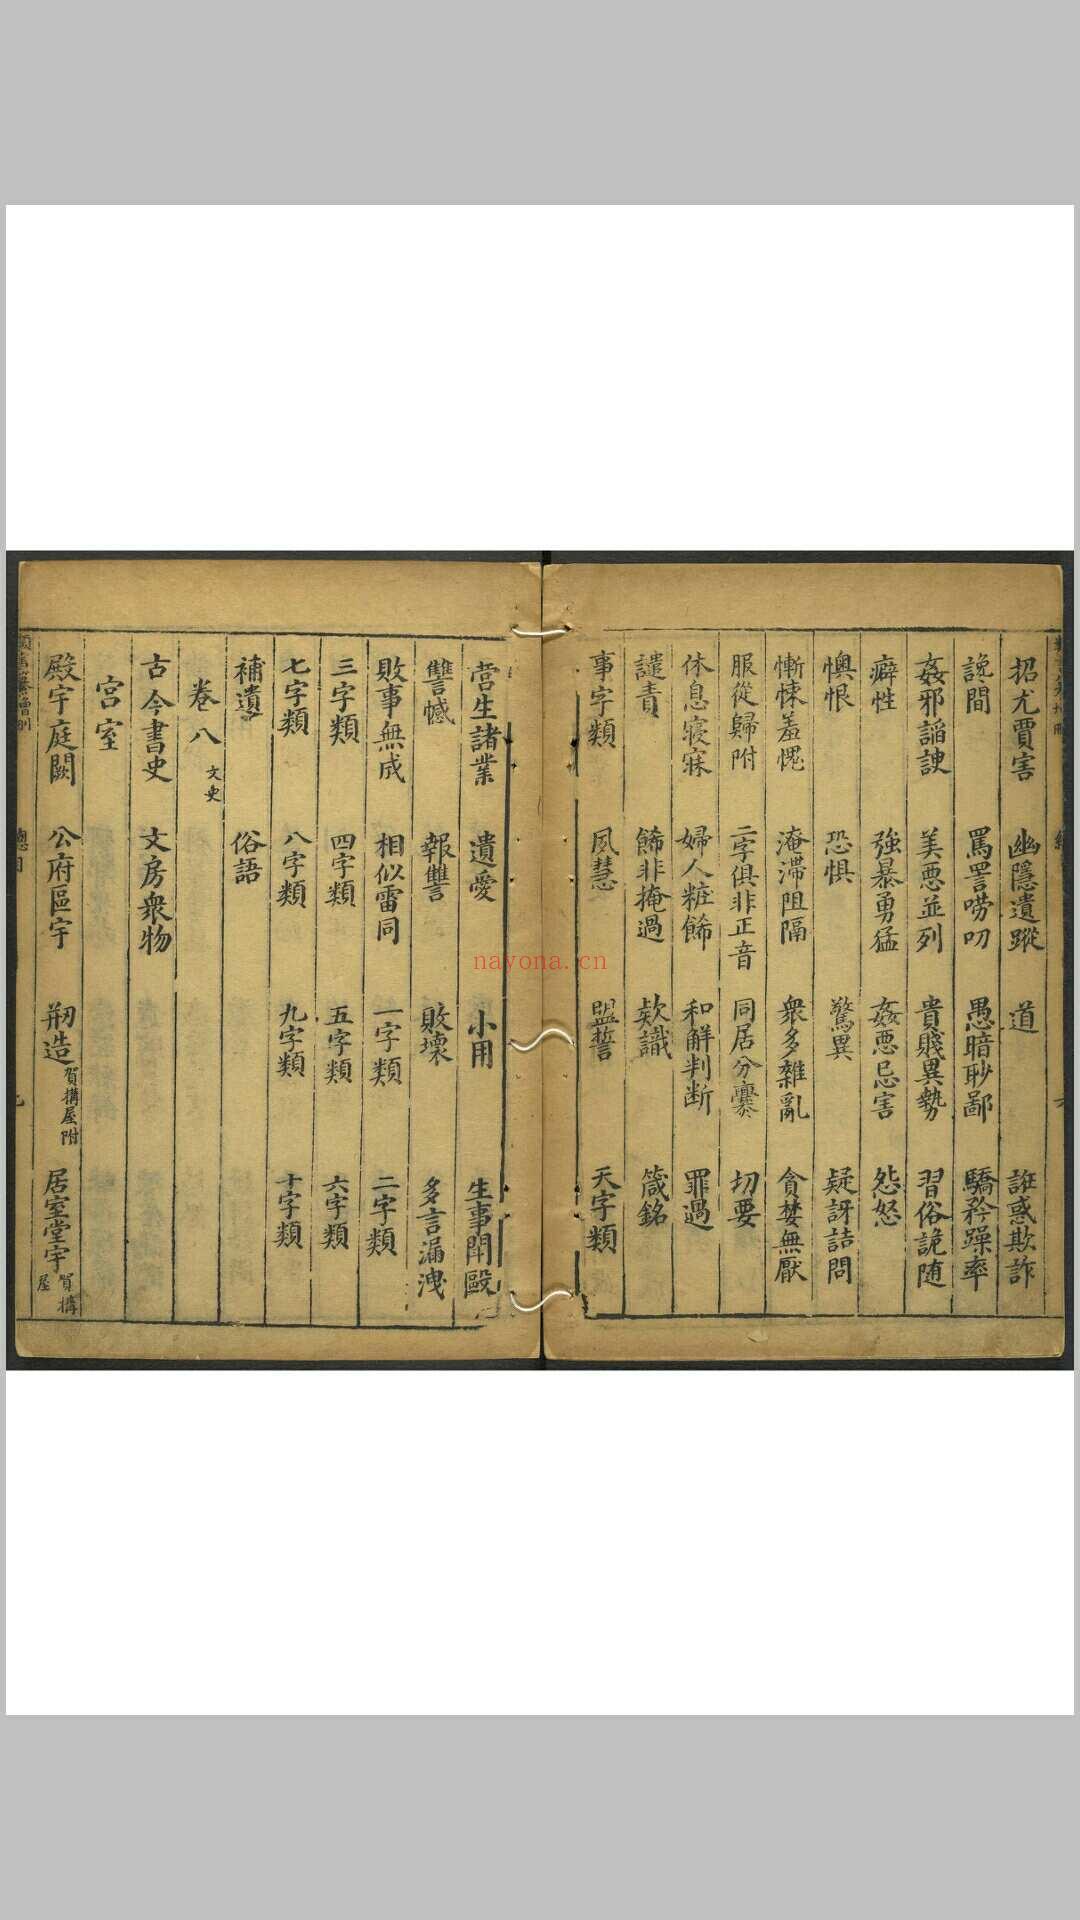 招尤賈害 幽隱遺蹤 道 誑惑欺詐
讒間 罵詈嘮叨 愚暗眇鄙 驕矜躁率
姦邪諂諛 美惡並列 貴賤異勢 習俗詭随
癖性 強暴勇猛 姦惡忌害 怨怒
懊恨 恐惧 驚異 疑訝詰問
慚悚羞愧 淹滯阻隔 衆多雜亂 貪婪無厭
服從歸附 二字俱非正音 同居分爨 切要
休息寢寐 婦人粧餙 和解判断 罪過
譴責 餙非掩過 欵識 箴銘
事字類 夙慧 盟誓 天字類
營生諸業 遺愛 小用 生事鬧毆
讐憾 報讐 敗壞 多言漏洩
敗事無成 相似雷同 一字類 二字類
三字類 四字類 五字類 六字類
七字類 八字類 九字類 十字類
補遺 俗語
卷八 文史
古今書史 文房衆物
宮室
殿宇庭闕 公府區宇 剏造 賀搆屋附 居室堂宇 賀搆屋
總目
nayona.cn